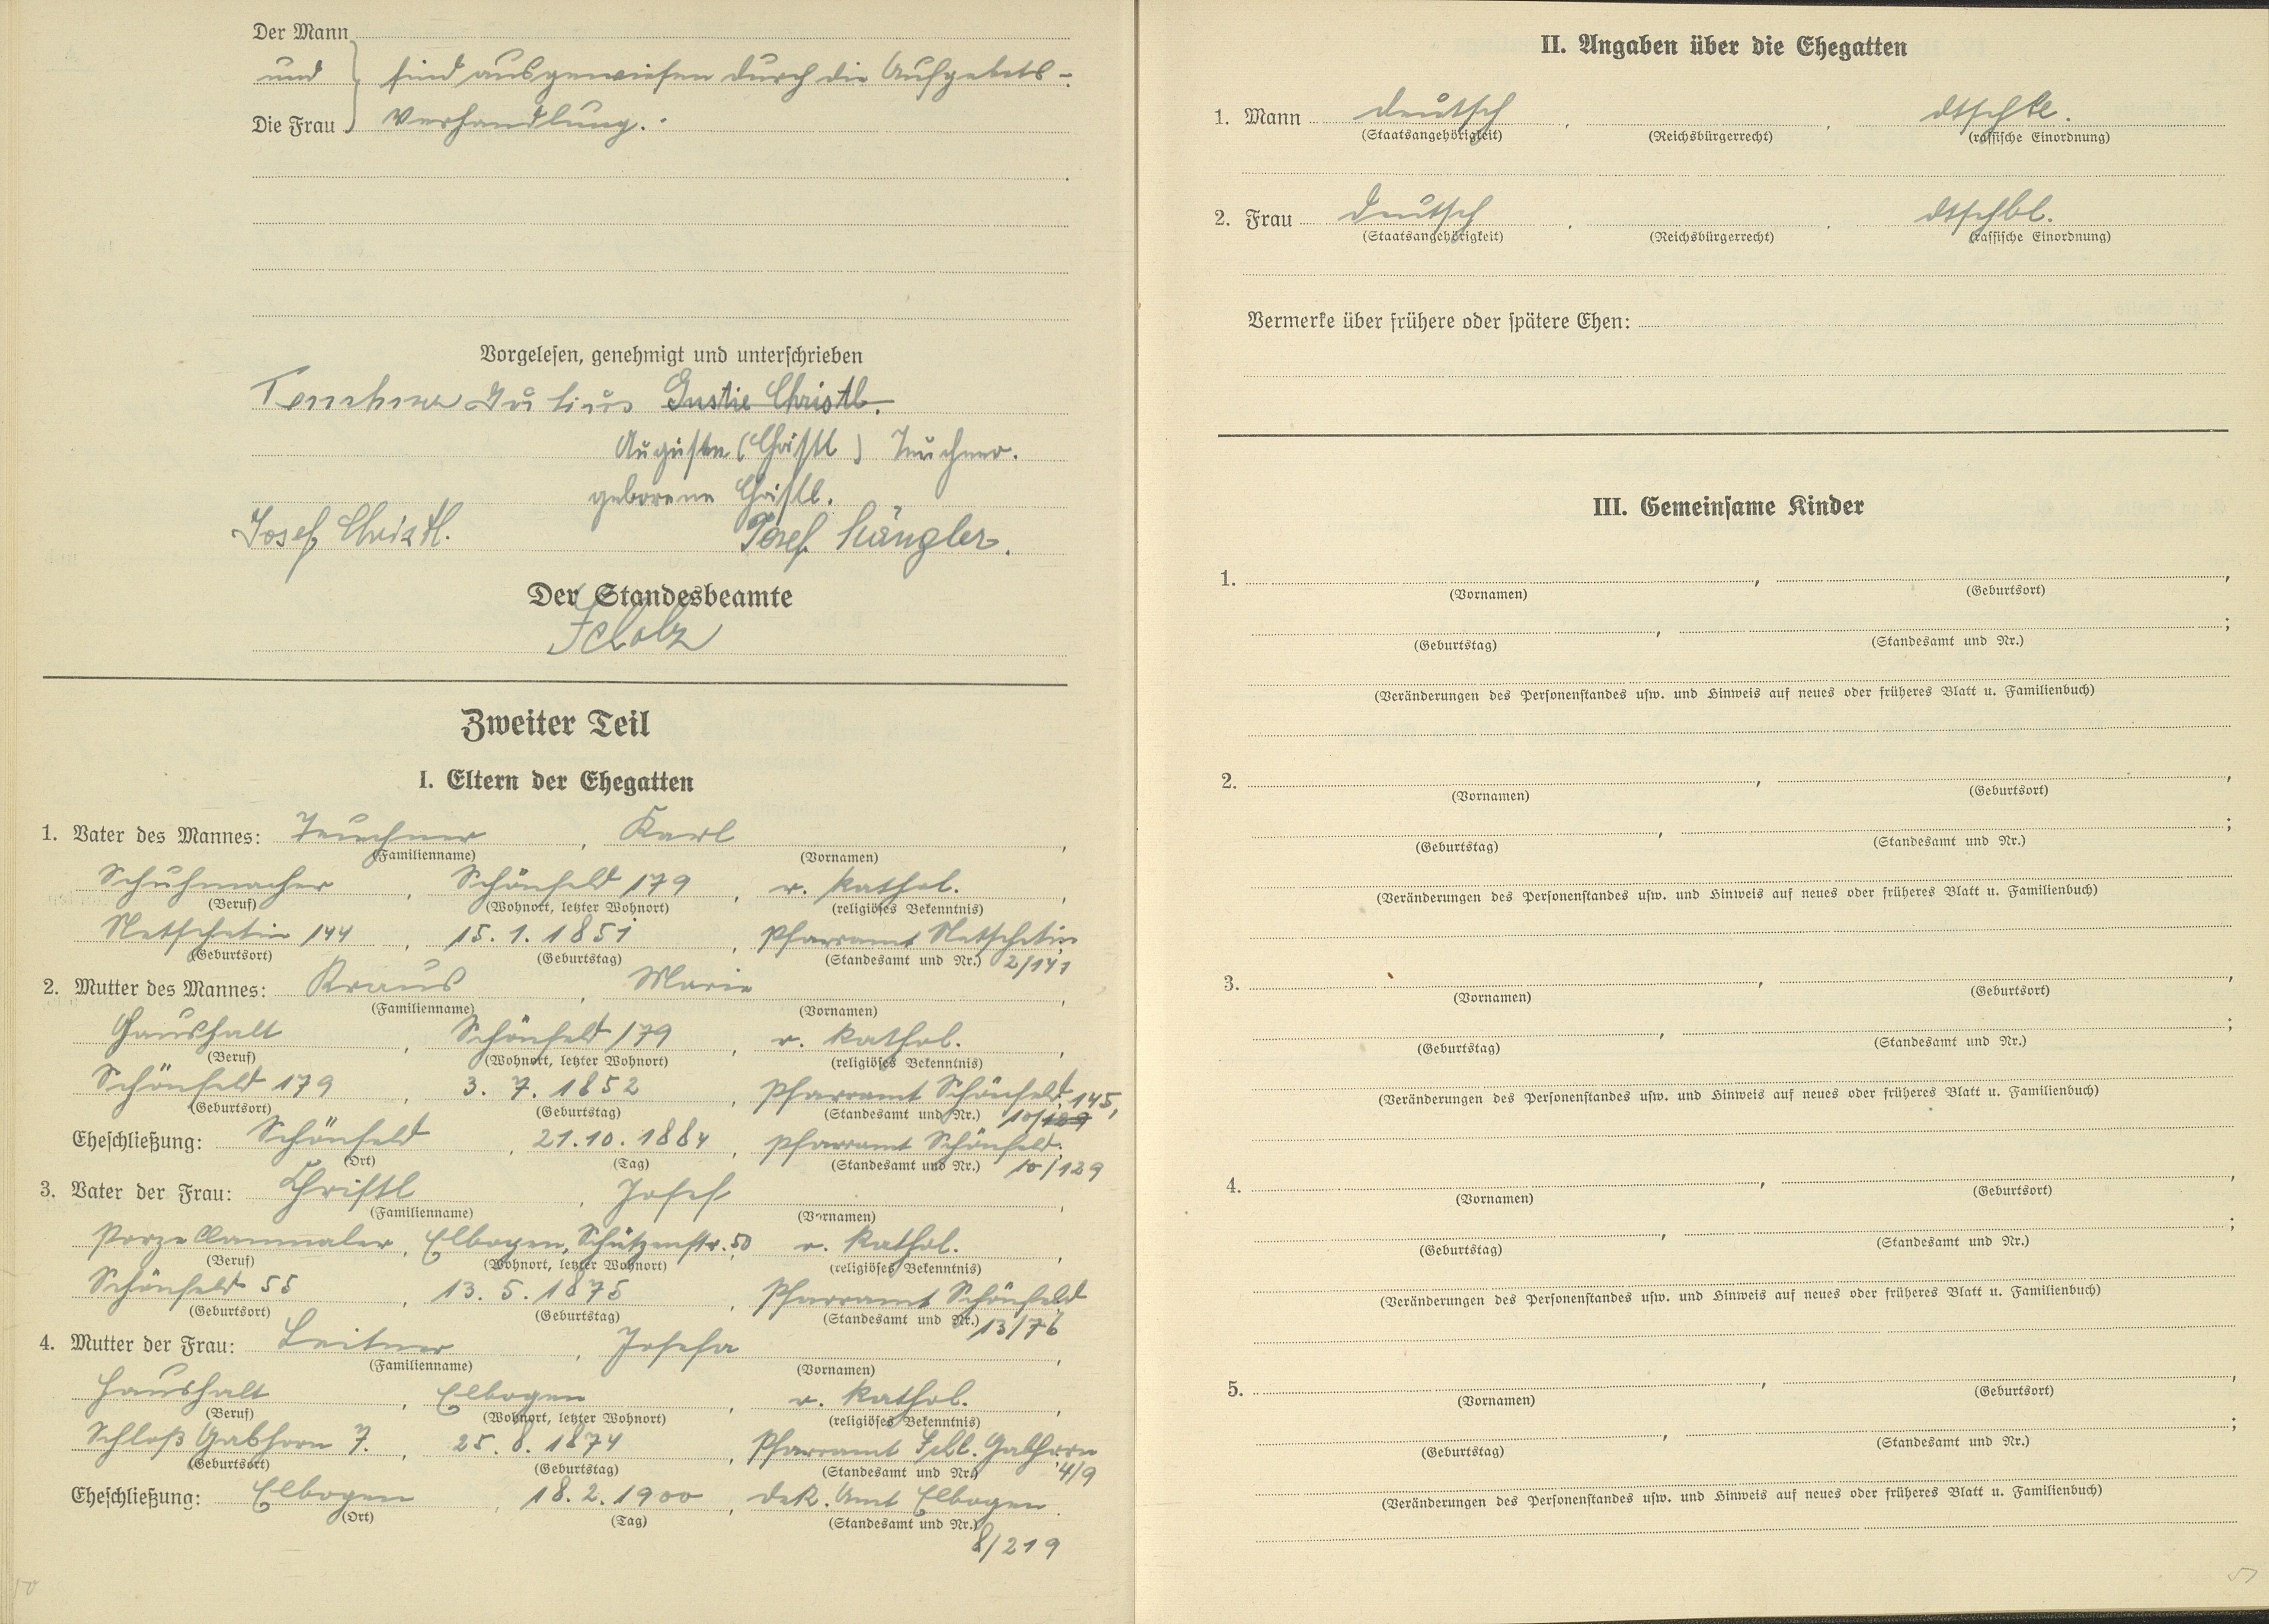 Der Mann
und } sind ausgewiesen durch die Aufgebots-
Die Frau Verhandlung.
Vorgelesen, genehmigt und unterschrieben
Teuchner Julius Gustie Christl.
Auguste (Christl) Teuchner.
geborene Christl.
Josef Christl. Josef Hängler.
Der Standesbeamte
Scholz
Zweiter Teil
I. Eltern der Ehegatten
1. Vater des Mannes: Teuchner, Karl,
(Familienname) (Vornamen)
Schuhmacher, Schönfeld 179, r. kathol.,
(Beruf) (Wohnort, letzter Wohnort) (religiöses Bekenntnis)
Netschetin 144, 15. 1. 1851, Pfarramt Netschetin
(Geburtsort) (Geburtstag) (Standesamt und Nr.) 2/141
2. Mutter des Mannes: Kraus, Marie,
(Familienname) (Vornamen)
Haushalt, Schönfeld 179, r. kathol.,
(Beruf) (Wohnort, letzter Wohnort) (religiöses Bekenntnis)
Schönfeld 179, 3. 7. 1852, Pfarramt Schönfeld, 145,
(Geburtsort) (Geburtstag) (Standesamt und Nr.) 10/129
Eheschließung: Schönfeld, 21. 10. 1884, Pfarramt Schönfeld.
(Ort) (Tag) (Standesamt und Nr.) 10/129
3. Vater der Frau: Christl, Josef,
(Familienname) (Vornamen)
Porzellanmaler, Elbogen, Schützenstr. 50, r. kathol.,
(Beruf) (Wohnort, letzter Wohnort) (religiöses Bekenntnis)
Schönfeld 55, 13. 5. 1875, Pfarramt Schönfeld
(Geburtsort) (Geburtstag) (Standesamt und Nr.) 13/76
4. Mutter der Frau: Leitner, Josefa,
(Familienname) (Vornamen)
Haushalt, Elbogen, r. kathol.,
(Beruf) (Wohnort, letzter Wohnort) (religiöses Bekenntnis)
Schloß Gabhorn 7., 25. 8. 1874, Pfarramt Schl. Gabhorn
(Geburtsort) (Geburtstag) (Standesamt und Nr.) 4/9
Eheschließung: Elbogen, 18. 2. 1900, Dek. Amt Elbogen.
(Ort) (Tag) (Standesamt und Nr.)
8/219
II. Angaben über die Ehegatten
1. Mann deutsch, , dtschbl.
(Staatsangehörigkeit) (Reichsbürgerrecht) (rassische Einordnung)
2. Frau deutsch, , dtschbl.
(Staatsangehörigkeit) (Reichsbürgerrecht) (rassische Einordnung)
Vermerke über frühere oder spätere Ehen:
III. Gemeinsame Kinder
1. , ,
(Vornamen) (Geburtsort)
, ;
(Geburtstag) (Standesamt und Nr.)
(Veränderungen des Personenstandes usw. und Hinweis auf neues oder früheres Blatt u. Familienbuch)
2. , ,
(Vornamen) (Geburtsort)
, ;
(Geburtstag) (Standesamt und Nr.)
(Veränderungen des Personenstandes usw. und Hinweis auf neues oder früheres Blatt u. Familienbuch)
3. , ,
(Vornamen) (Geburtsort)
, ;
(Geburtstag) (Standesamt und Nr.)
(Veränderungen des Personenstandes usw. und Hinweis auf neues oder früheres Blatt u. Familienbuch)
4. , ,
(Vornamen) (Geburtsort)
, ;
(Geburtstag) (Standesamt und Nr.)
(Veränderungen des Personenstandes usw. und Hinweis auf neues oder früheres Blatt u. Familienbuch)
5. , ,
(Vornamen) (Geburtsort)
, ;
(Geburtstag) (Standesamt und Nr.)
(Veränderungen des Personenstandes usw. und Hinweis auf neues oder früheres Blatt u. Familienbuch)